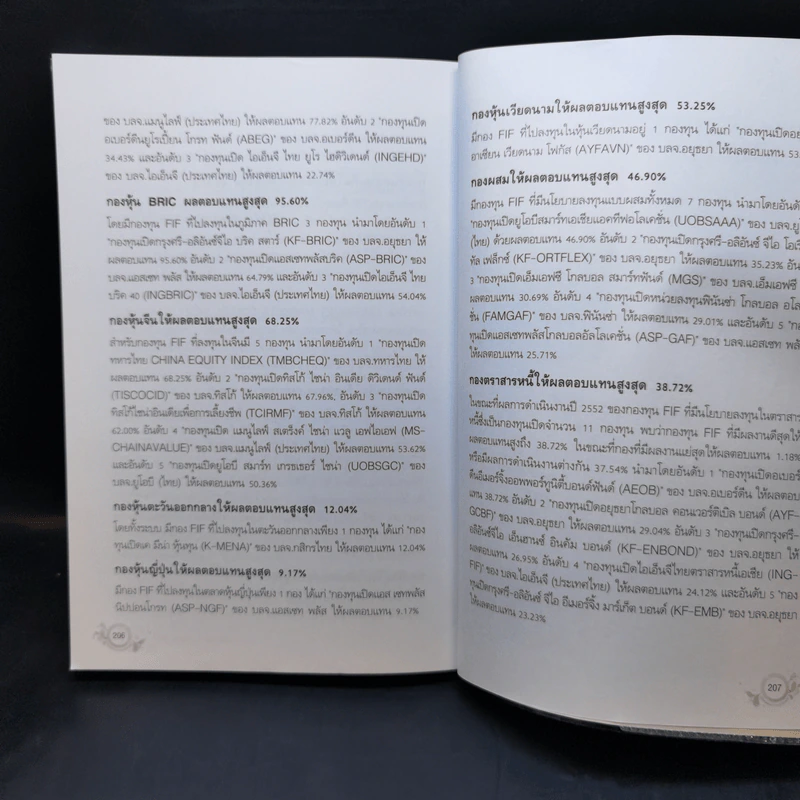 ของ บลจ.แมนูไลฟ์ (ประเทศไทย) ให้ผลตอบแทน 77.82% อันดับ 2 "กองทุนเปิด
อเบอร์ดีนยูโรเปี้ยน โกรท ฟันด์ (ABEG)" ของ บลจ.อเบอร์ดีน ให้ผลตอบแทน
34.43% และอันดับ 3 "กองทุนเปิด ไอเอ็นจี ไทย ยูโร ไฮดิวิเดนด์ (INGEHD)"
ของ บลจ.ไอเอ็นจี (ประเทศไทย) ให้ผลตอบแทน 22.74%
กองหุ้น BRIC ผลตอบแทนสูงสุด 95.60%
โดยมีกองทุน FIF ที่ไปลงทุนในภูมิภาค BRIC 3 กองทุน นำมาโดยอันดับ 1
"กองทุนเปิดกรุงศรี-อลิอันซ์จีไอ บริค สตาร์ (KF-BRIC)" ของ บลจ.อยุธยา ให้
ผลตอบแทน 95.60% อันดับ 2 "กองทุนเปิดแอสเซทพลัสบริค (ASP-BRIC)"
ของ บลจ.แอสเซท พลัส ให้ผลตอบแทน 64.79% และอันดับ 3 "กองทุนเปิดไอเอ็นจี ไทย
บริค 40 (INGBRIC)" ของ บลจ.ไอเอ็นจี (ประเทศไทย) ให้ผลตอบแทน 54.04%
กองหุ้นจีนให้ผลตอบแทนสูงสุด 68.25%
สำหรับกองทุน FIF ที่ลงทุนในจีนมี 5 กองทุน นำมาโดยอันดับ 1 "กองทุนเปิด
ทหารไทย CHINA EQUITY INDEX (TMBCHEQ)" ของ บลจ.ทหารไทย ให้
ผลตอบแทน 68.25% อันดับ 2 "กองทุนเปิดทิสโก้ ไชน่า อินเดีย ดิวิเดนด์ ฟันด์
(TISCOCID)" ของ บลจ.ทิสโก้ ให้ผลตอบแทน 67.96%, อันดับ 3 "กองทุนเปิด
ทิสโก้ไชน่าอินเดียเพื่อการเลี้ยงชีพ (TCIRMF)" ของ บลจ.ทิสโก้ ให้ผลตอบแทน
62.00% อันดับ 4 "กองทุนเปิด แมนูไลฟ์ สเตร็งค์ ไชน่า แวลู เอฟไอเอฟ (MS-
CHAINAVALUE)" ของ บลจ.แมนูไลฟ์ (ประเทศไทย) ให้ผลตอบแทน 53.62%
และอันดับ 5 "กองทุนเปิดยูโอบี สมาร์ท เกรธเธอร์ ไชน่า (UOBSGC)" ของ
บลจ.ยูโอบี (ไทย) ให้ผลตอบแทน 50.36%
กองหุ้นตะวันออกกลางให้ผลตอบแทนสูงสุด 12.04%
โดยทั้งระบบ มีกอง FIF ที่ไปลงทุนในตะวันออกกลางเพียง 1 กองทุน ได้แก่ "กอง
ทุนเปิดเค มีน่า หุ้นทุน (K-MENA)" ของ บลจ.กสิกรไทย ให้ผลตอบแทน 12.04%
กองหุ้นญี่ปุ่นให้ผลตอบแทนสูงสุด 9.17%
มีกอง FIF ที่ไปลงทุนในตลาดหุ้นญี่ปุ่นเพียง 1 กอง ได้แก่ "กองทุนเปิดแอส เซทพลัส
นิปปอนโกรท (ASP-NGF)" ของ บลจ.แอสเซท พลัส ให้ผลตอบแทน 9.17%
206
กองหุ้นเวียดนามให้ผลตอบแทนสูงสุด 53.25%
มีกอง FIF ที่ไปลงทุนในหุ้นเวียดนามอยู่ 1 กองทุน ได้แก่ "กองทุนเปิดอยุ
อาเซียน เวียดนาม โฟกัส (AYFAVN)" ของ บลจ.อยุธยา ให้ผลตอบแทน 53.
กองผสมให้ผลตอบแทนสูงสุด 46.90%
มีกองทุน FIF ที่มีนโยบายลงทุนแบบผสมทั้งหมด 7 กองทุน นำมาโดยอันดับ
"กองทุนเปิดยูโอบีสมาร์ทเอเชียแอคทีฟอโลเคชั่น (UOBSAAA)" ของ บลจ.ยู
(ไทย) ด้วยผลตอบแทน 46.90% อันดับ 2 "กองทุนเปิดกรุงศรี-อลิอันซ์ จีไอ โอเรี
ทัล เฟล็กซ์ (KF-ORTFLEX)" ของ บลจ.อยุธยา ให้ผลตอบแทน 35.23% อัน
3 "กองทุนเปิดเอ็มเอฟซี โกลบอล สมาร์ทฟันด์ (MGS)" ของ บลจ.เอ็มเอฟซี
ผลตอบแทน 30.69% อันดับ 4 "กองทุนเปิดหน่วยลงทุนฟินันซ่า โกลบอล อโล
ชั่น (FAMGAF)" ของ บลจ.ฟินันซ่า ให้ผลตอบแทน 29.01% และอันดับ 5 "ก
ทุนเปิดแอสเซทพลัสโกลบอลอัลโลเคชั่น (ASP-GAF)" ของ บลจ.แอสเซท พ
ให้ผลตอบแทน 25.71%
กองตราสารหนี้ให้ผลตอบแทนสูงสุด 38.72%
ในขณะที่ผลการดำเนินงานปี 2552 ของกองทุน FIF ที่มีนโยบายลงทุนในตราสา
หนี้ซึ่งเป็นกองทุนเปิดจำนวน 11 กองทุน พบว่ากองทุน FIF ที่มีผลงานดีสุดให้
ผลตอบแทนสูงถึง 38.72% ในขณะที่กองที่มีผลงานแย่สุดให้ผลตอบแทน 1.18%
หรือมีผลการดำเนินงานต่างกัน 37.54% นำมาโดยอันดับ 1 "กองทุนเปิดอเบอร์
ดีนอีเมอร์จิ้งออพพอร์ทูนิตี้บอนด์ฟันด์ (AEOB)" ของ บลจ.อเบอร์ดีน ให้ผลตอบแทน
38.72% อันดับ 2 "กองทุนเปิดอยุธยาโกลบอล คอนเวอร์ติเบิล บอนด์ (AYF-
GCBF)" ของ บลจ.อยุธยา ให้ผลตอบแทน 29.04% อันดับ 3 "กองทุนเปิดกรุงศรี-
อลิอันซ์จีไอ เอ็นฮานซ์ อินคัม บอนด์ (KF-ENBOND)" ของ บลจ.อยุธยา ให้
ผลตอบแทน 26.95% อันดับ 4 "กองทุนเปิดไอเอ็นจีไทยตราสารหนี้เอเชีย (ING-
FIF)" ของ บลจ.ไอเอ็นจี (ประเทศไทย) ให้ผลตอบแทน 24.12% และอันดับ 5 "กอง
ทุนเปิดกรุงศรี-อลิอันซ์ จีไอ อีเมอร์จิ้ง มาร์เก็ต บอนด์ (KF-EMB)" ของ บลจ.อยุธยา
ให้ผลตอบแทน 23.23%
207